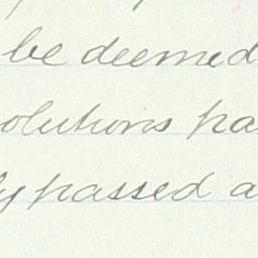 be deemed
olutions pa
ly passed a